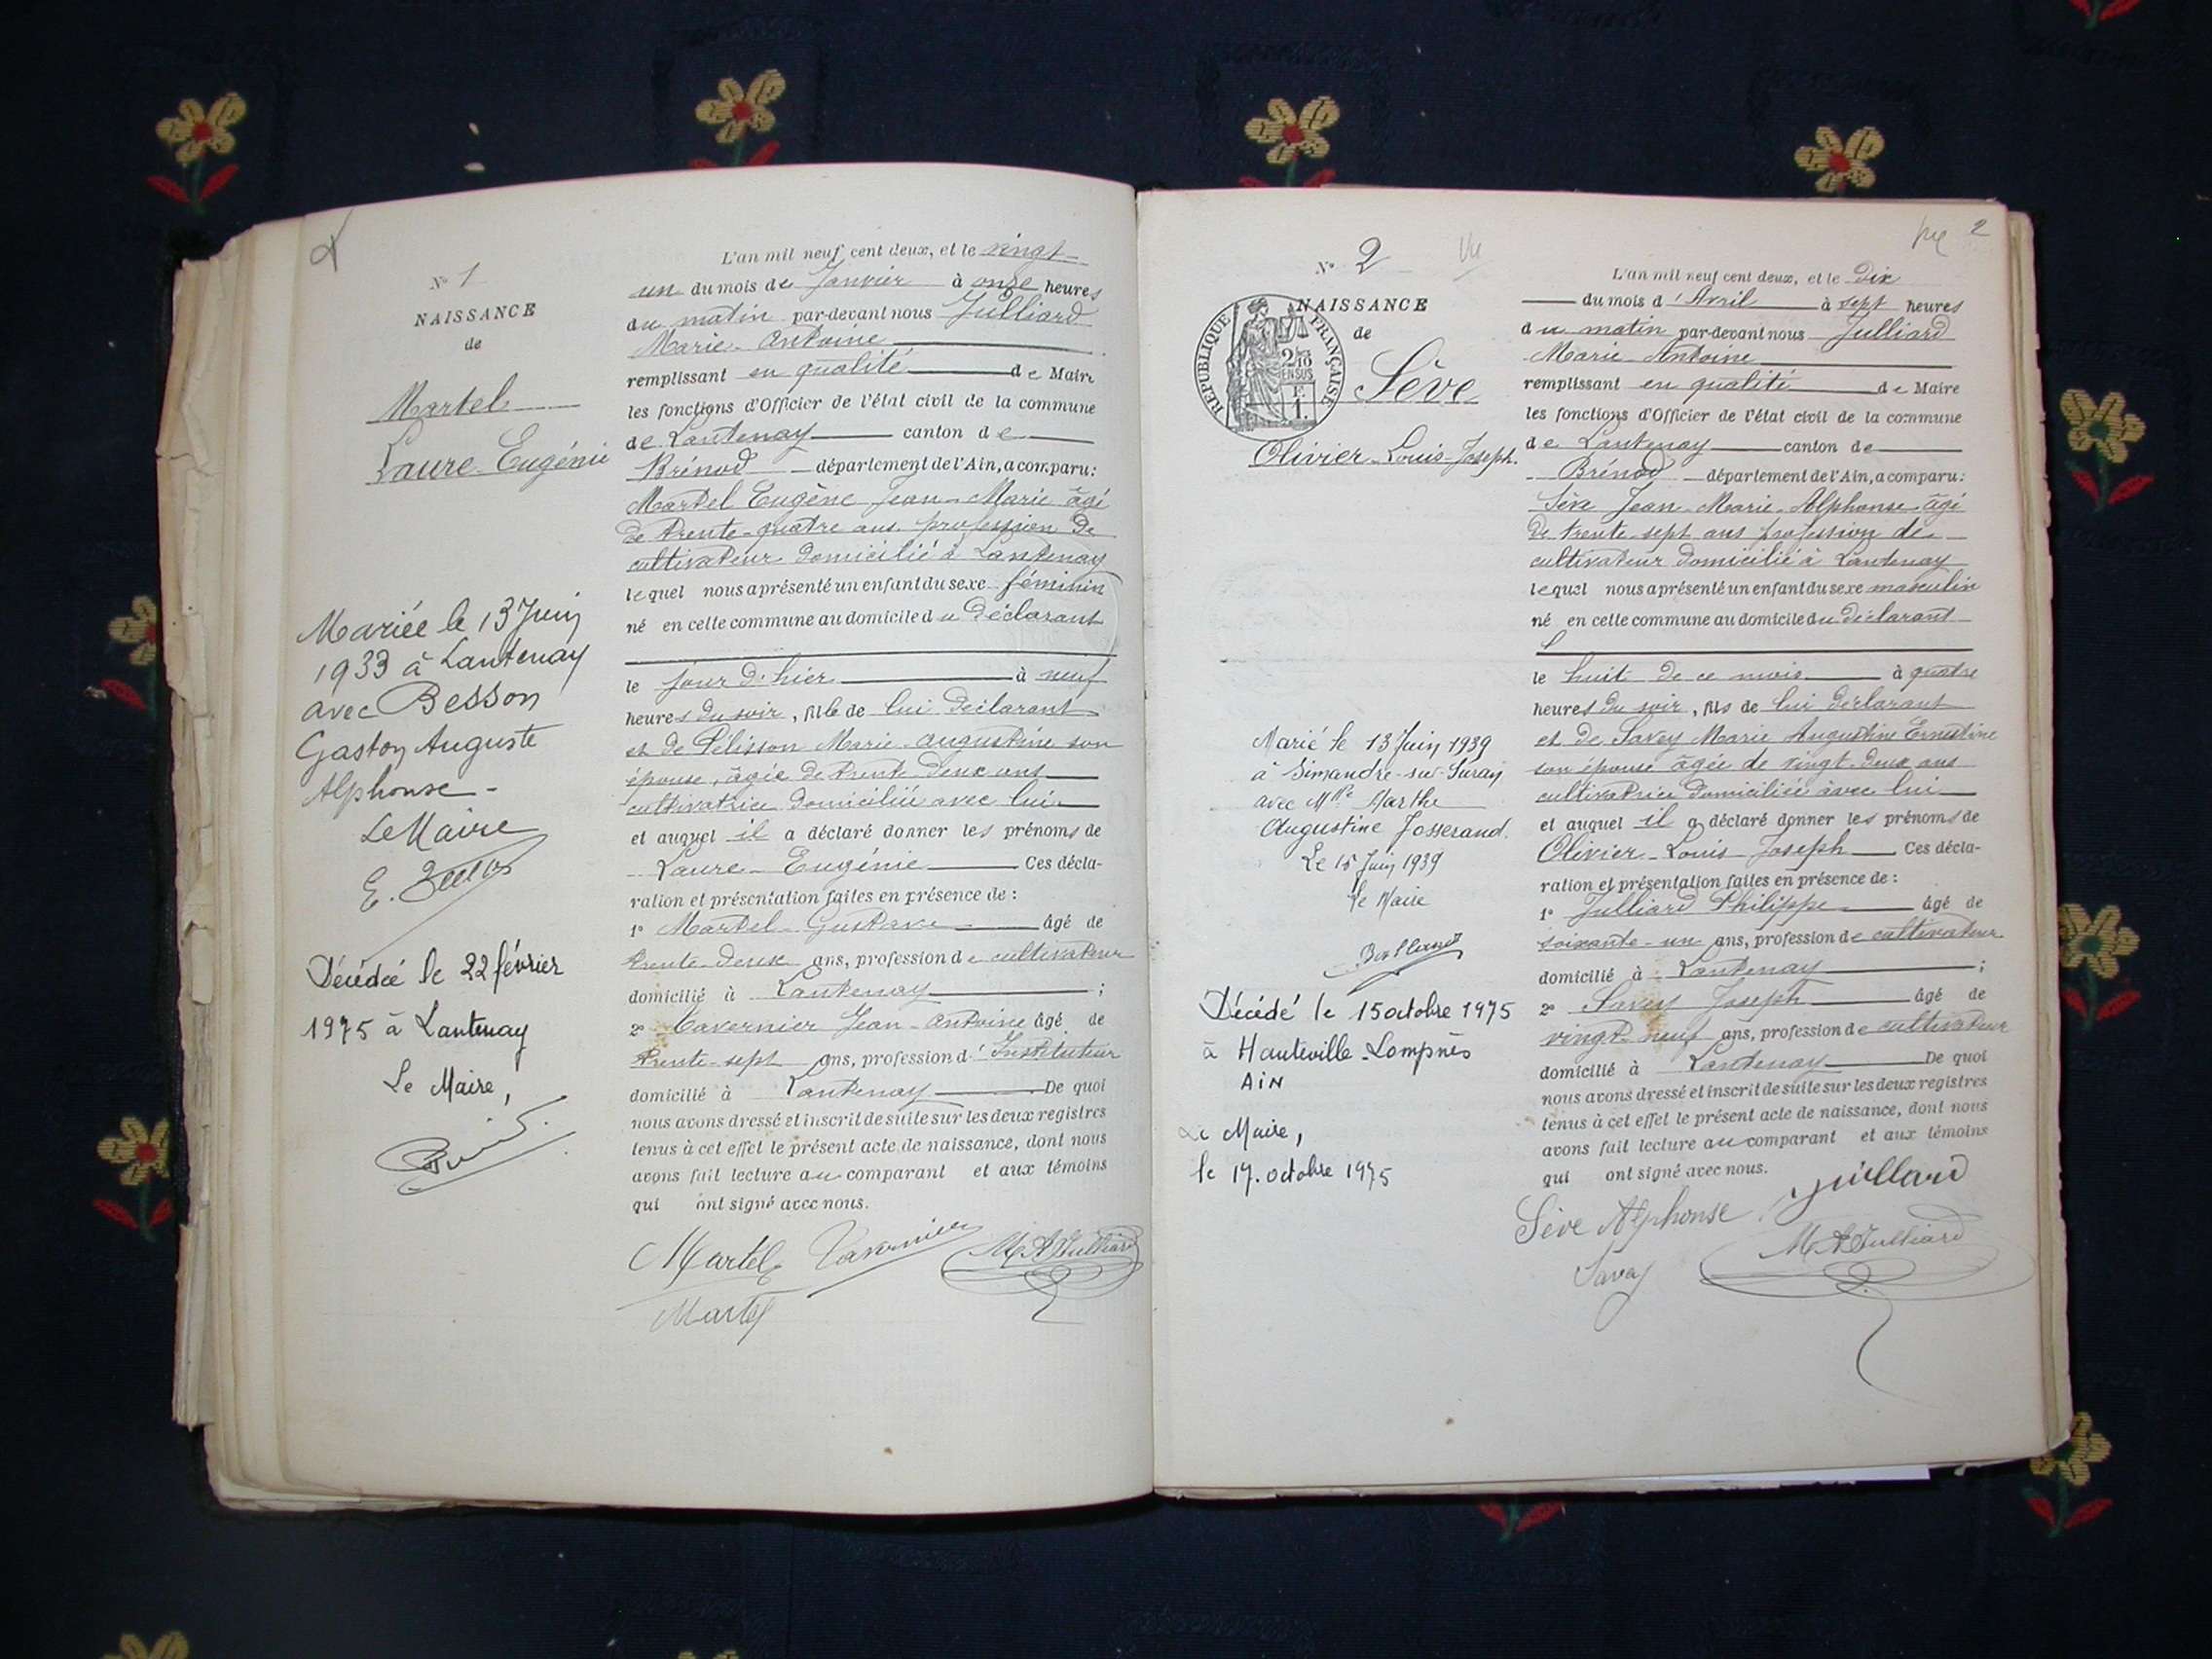 N° 1
NAISSANCE
de
Martel
Laure Eugénie
Mariée le 13 Juin
1933 à Lantenay
avec Besson
Gaston Auguste
Alphonse -
Le Maire
Décédée le 22 février
1975 à Lantenay
Le Maire,
L'an mil neuf cent deux, et le vingt
un du mois de Janvier à onze heures
du matin par-devant nous Julliard
Marie-Antoine
remplissant en qualité de Maire
les fonctions d'Officier de l'état civil de la commune
de Lantenay canton de
Brénod département de l'Ain, a comparu :
Martel Eugène Jean-Marie âgé
de trente-quatre ans profession de
cultivateur domicilié à Lantenay
lequel nous a présenté un enfant du sexe féminin
né en cette commune au domicile du déclarant
le jour d'hier à neuf
heures du soir, fille de lui déclarant
et de Pélisson Marie-Augustine son
épouse, âgée de trente deux ans
cultivatrice domiciliée avec lui
et auquel il a déclaré donner les prénoms de
Laure-Eugénie Ces décla-
ration et présentation faites en présence de :
1° Martel Gustave âgé de
trente-deux ans, profession de cultivateur
domicilié à Lantenay ;
2° Tavernier Jean-Antoine âgé de
trente-sept ans, profession d'Instituteur
domicilié à Lantenay De quoi
nous avons dressé et inscrit de suite sur les deux registres
tenus à cet effet le présent acte de naissance, dont nous
avons fait lecture au comparant et aux témoins
qui ont signé avec nous.
Martel Tavernier M A Julliard
Martel
2
N° 2
NAISSANCE
de
RÉPUBLIQUE FRANÇAISE
2/10
EN SUS
F.
1.
Sève
Olivier-Louis-Joseph.
Marié le 13 Juin 1939
à Simandre-sur-Suran
avec Mlle Marthe
Augustine Josserand.
Le 15 Juin 1939
Le Maire
Décédé le 15 octobre 1975
à Hauteville-Lompnès
AIN
Le Maire,
le 17. octobre 1975
L'an mil neuf cent deux, et le dix
du mois d'Avril à sept heures
du matin par-devant nous Julliard
Marie-Antoine
remplissant en qualité de Maire
les fonctions d'Officier de l'état civil de la commune
de Lantenay canton de
Brénod département de l'Ain, a comparu :
Sève Jean-Marie-Alphonse âgé
de trente sept ans profession de
cultivateur domicilié à Lantenay
lequel nous a présenté un enfant du sexe masculin
né en cette commune au domicile du déclarant
le huit de ce mois à quatre
heures du soir, fils de lui déclarant
et de Savey Marie Augustine Ernestine
son épouse âgée de vingt-deux ans
cultivatrice domiciliée avec lui
et auquel il a déclaré donner les prénoms de
Olivier-Louis-Joseph Ces décla-
ration et présentation faites en présence de :
1° Julliard Philippe âgé de
soixante-un ans, profession de cultivateur
domicilié à Lantenay ;
2° Savey Joseph âgé de
vingt-neuf ans, profession de cultivateur
domicilié à Lantenay De quoi
nous avons dressé et inscrit de suite sur les deux registres
tenus à cet effet le présent acte de naissance, dont nous
avons fait lecture au comparant et aux témoins
qui ont signé avec nous. Juillard
Sève Alphonse
M A Julliard
Savey